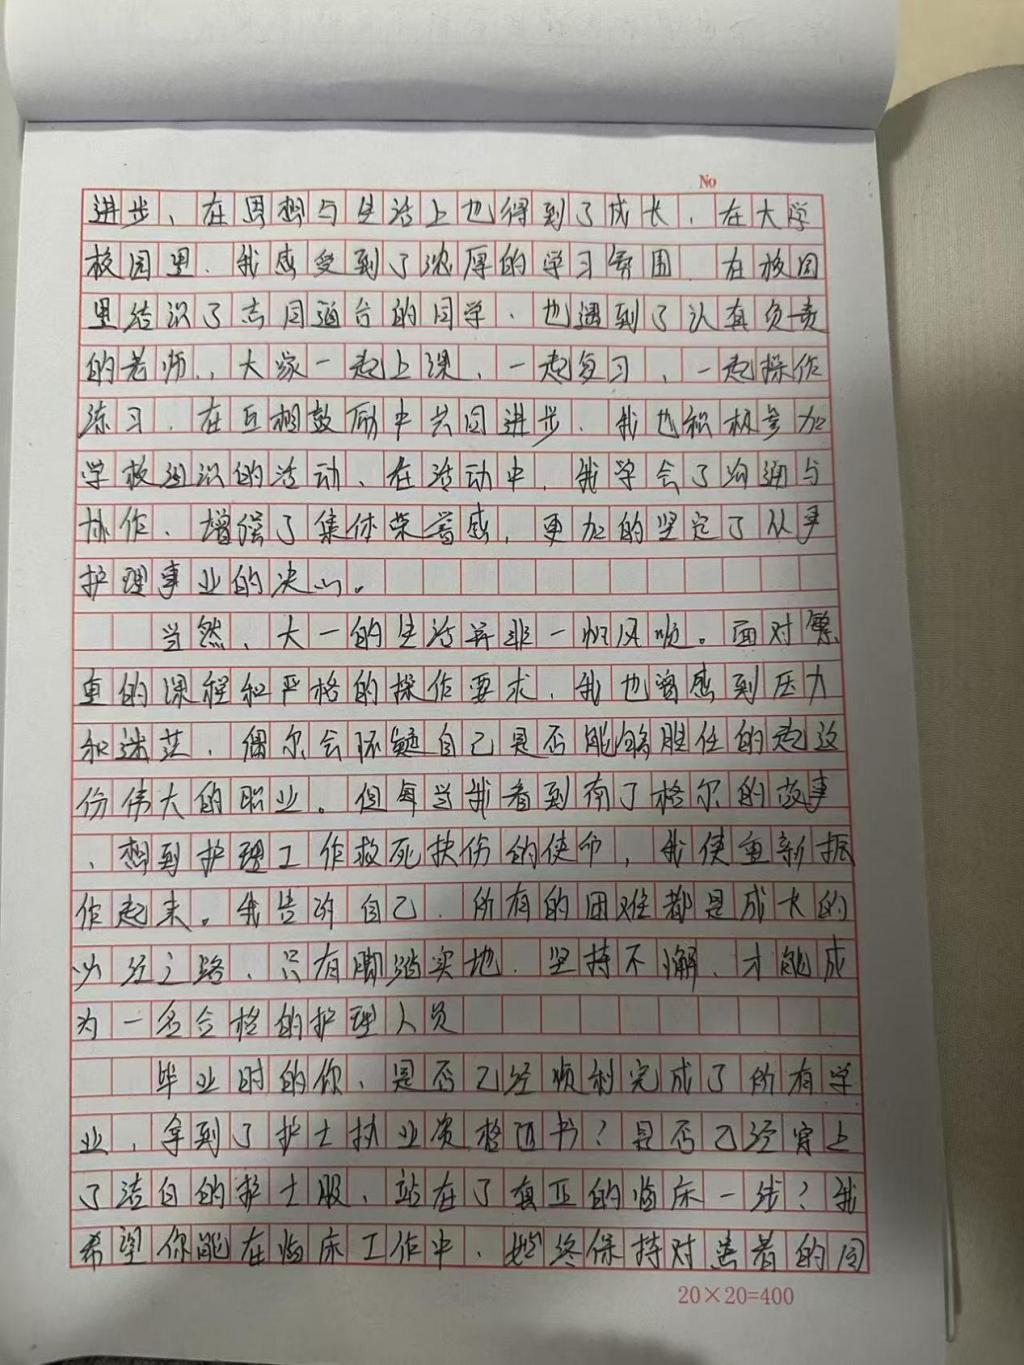 No
进步、在思想与生活上也得到了成长，在大学
校园里、我感受到了浓厚的学习氛围、在校园
里结识了志同道合的同学、也遇到了认真负责
的老师，、大家一起上课、一起复习、一起操作
练习、在互相鼓励中共同进步、我也积极参加
学校组织的活动、在活动中、我学会了沟通与
协作、增强了集体荣誉感，更加的坚定了从事
护理事业的决心。
当然、大一的生活并非一帆风顺。面对繁
重的课程和严格的操作要求、我也曾感到压力
和迷茫、偶尔会怀疑自己是否能够胜任的起这
份伟大的职业。但每当我看到南丁格尔的故事
、想到护理工作救死扶伤的使命，我使重新振
作起来。我告诉自己、所有的困难都是成长的
必经之路、只有脚踏实地、坚持不懈、才能成
为一名合格的护理人员
毕业时的你、是否已经顺利完成了所有学
业，拿到了护士执业资格证书？是否已经穿上
了洁白的护士服、站在了真正的临床一线？我
希望你能在临床工作中、始终保持对患者的同
20×20=400